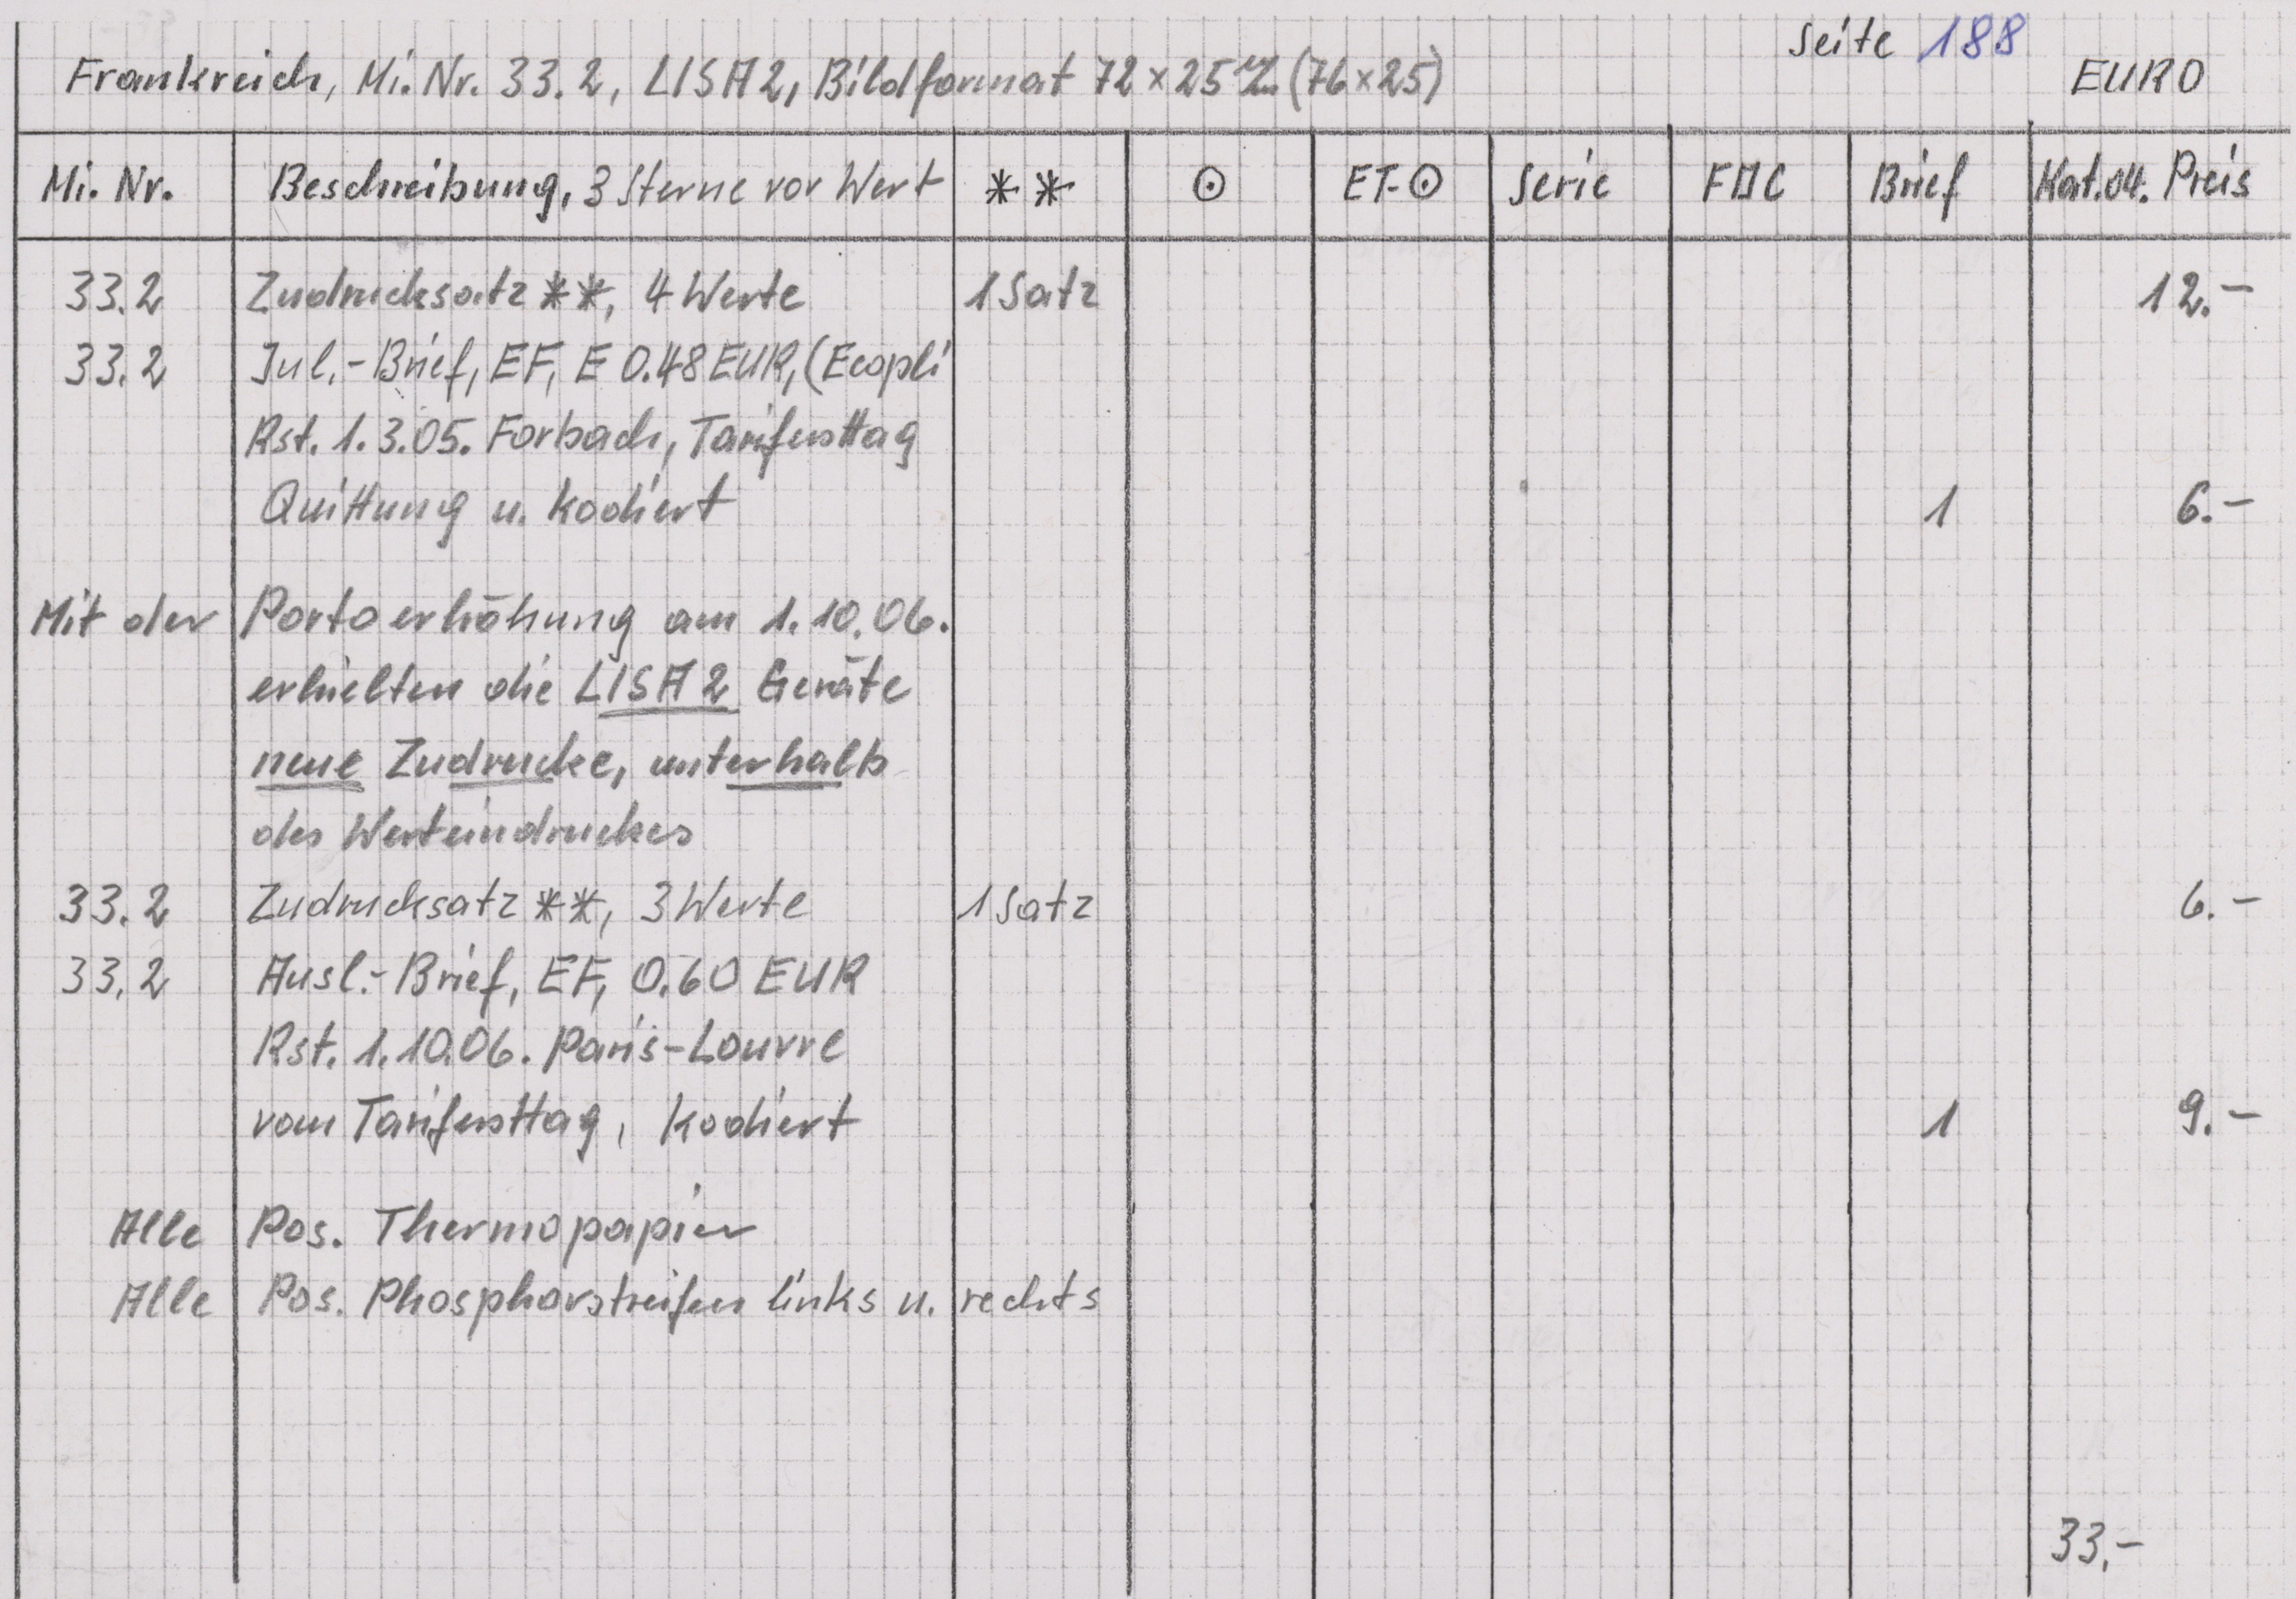 Seite 188
Frankreich, Mi. Nr. 33.2, LISA 2, Bildformat 72 x 25 (76 x 25)
EURO
Mi. Nr. Beschreibung, 3 Sterne vor Wert ** ⊙ ET-⊙ Serie FDC Brief Kat.04. Preis
33.2 Zudrucksatz **, 4 Werte 1 Satz 12.-
33.2 Inl.-Brief, EF, E 0.48 EUR, (Ecopli
Rst. 1.3.05. Forbach, Tarifersttag
Quittung u. kodiert 1 6.-
Mit der Portoerhöhung am 1.10.06.
erhielten die LISA 2 Geräte
neue Zudrucke, unterhalb
des Werteindruckes
33.2 Zudrucksatz **, 3 Werte 1 Satz 6.-
33.2 Ausl.-Brief, EF, 0.60 EUR
Rst. 1.10.06. Paris-Louvre
vom Tarifersttag, kodiert 1 9.-
Alle Pos. Thermopapier
Alle Pos. Phosphorstreifen links u. rechts
33,-